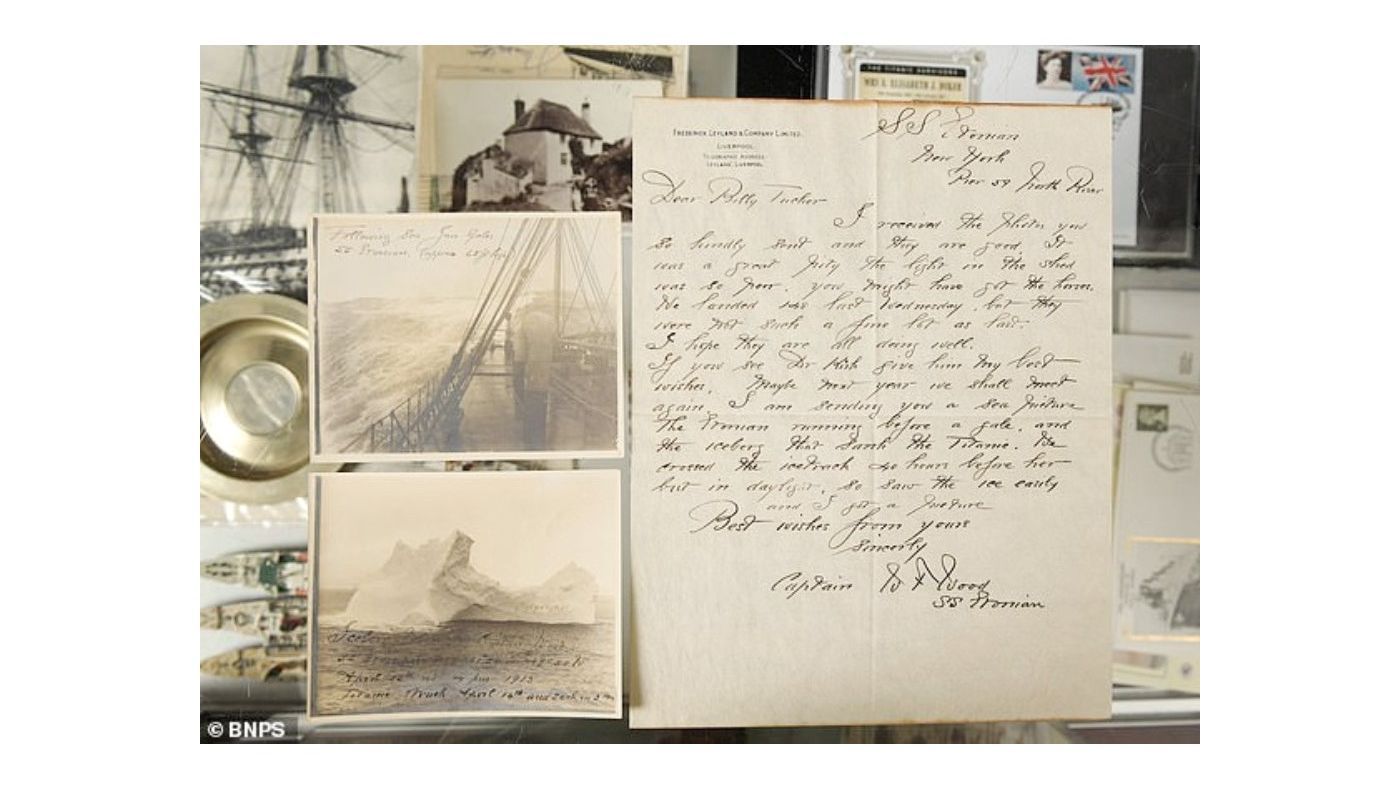 THE TITANIC SURVIVORS
FREDERICK LEYLAND & COMPANY LIMITED.
LIVERPOOL.
TELEGRAPHIC ADDRESS
LEYLAND, LIVERPOOL
SS Etonian
New York
Pier 59 North River
Dear Billy Tucker
I received the photos you
so kindly sent and they are good It
was a great pity the light in the shed
was so poor. you might have got the horses.
We landed last Wednesday, but they
were not such a fine lot as last.
I hope they are all doing well.
If you see give him my best
wishes. Maybe next year we shall meet
again. I am sending you a sea picture
The Etonian running before a gale, and
the iceberg that sank the Titanic. We
crossed the icetrack 40 hours before her
but in daylight, so saw the ice easily
and I got a picture
Best wishes from yours
Sincerly
Captain W F Wood
SS Etonian
Following Sea
SS Etonian, Captain
Iceberg
SS Etonian
April 12th 4 pm 1912
Titanic struck April 14th and sank in
© BNPS